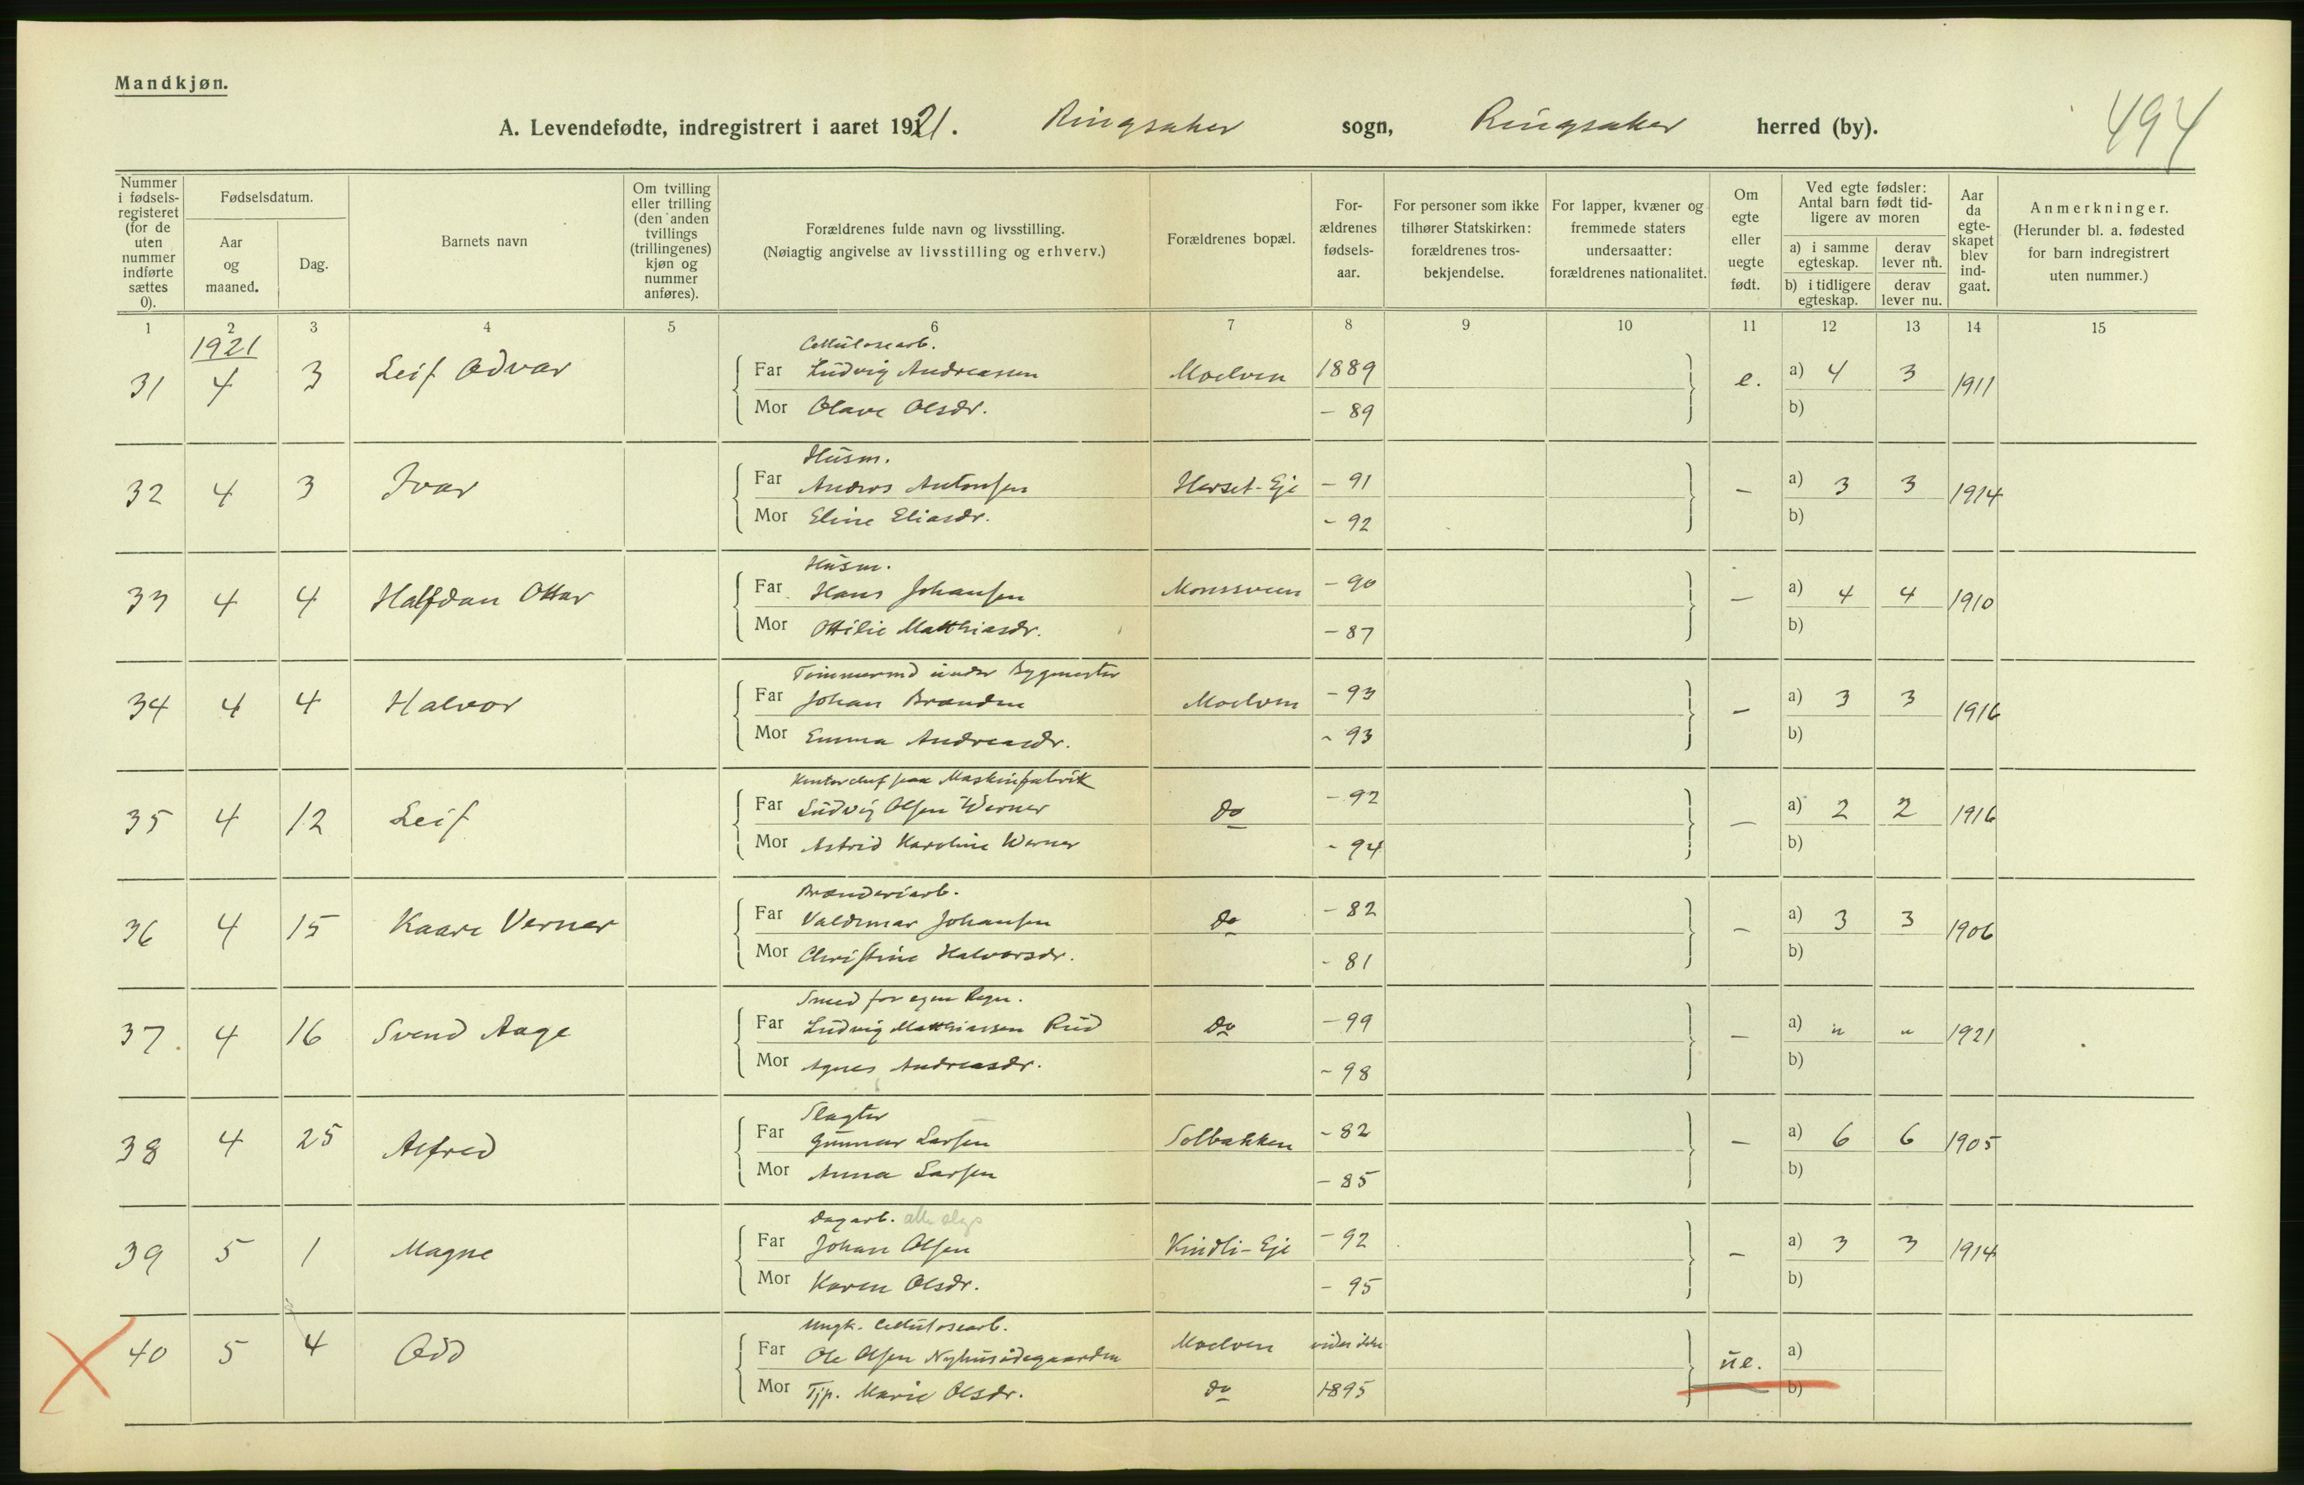 Mandkjøn.
494
A. Levendefødte, indregistrert i aaret 1921. Ringsaker sogn, Ringsaker herred (by).
Nummer i fødselsregisteret (for de uten nummer indførte sættes 0).
Fødselsdatum.
Aar og maaned.
Dag.
Barnets navn
Om tvilling eller trilling (den anden tvillings (trillingenes) kjøn og nummer anføres).
Forældrenes fulde navn og livsstilling.
(Nøiagtig angivelse av livsstilling og erhverv.)
Forældrenes bopæl.
Forældrenes fødselsaar.
For personer som ikke tilhører Statskirken: forældrenes trosbekjendelse.
For lapper, kvæner og fremmede staters undersaatter: forældrenes nationalitet.
Om egte eller uegte født.
Ved egte fødsler: Antal barn født tidligere av moren
a) i samme egteskap.
derav lever nu.
b) i tidligere egteskap.
derav lever nu.
Aar da egteskapet blev indgaat.
Anmerkninger.
(Herunder bl. a. fødested for barn indregistrert uten nummer.)
1 2 3 4 5 6 7 8 9 10 11 12 13 14 15
1921
Cellulosearb.
31 4 3 Leif Odvar Far Ludvig Andreassen Moelven 1889 e. a) 4 3 1911
Mor Olave Olsdr. - 89 b)
Husm.
32 4 3 Ivar Far Anders Antonsen Herset-Eje - 91 - a) 3 3 1914
Mor Eline Eliasdr. - 92 b)
Husm.
33 4 4 Halfdan Ottar Far Hans Johansen Monssveen - 90 - a) 4 4 1910
Mor Ottilie Matthiasdr. - 87 b)
Tømmermd under Bygmester
34 4 4 Halvor Far Johan Brænden Moelven - 93 - a) 3 3 1916
Mor Emma Andreasdr. - 93 b)
Kontorchef paa Maskinfabrik
35 4 12 Leif Far Ludvig Olsen Werner do - 92 - a) 2 2 1916
Mor Astrid Karoline Werner - 94 b)
Brænderiarb.
36 4 15 Kaare Verner Far Valdemar Johansen do - 82 - a) 3 3 1906
Mor Christine Halvorsdr. - 81 b)
Smed for egen Regn.
37 4 16 Svend Aage Far Ludvig Matthiassen Rud do - 99 - a) " " 1921
Mor Agnes Andreasdr. - 98 b)
Slagter
38 4 25 Alfred Far Gunnar Larsen Solbakken - 82 - a) 6 6 1905
Mor Anna Larsen - 85 b)
Dagarb.
39 5 1 Magne Far Johan Olsen Kindli-Eje - 92 - a) 3 3 1914
Mor Karen Olsdr. - 95 b)
Ungk. Cellulosearb.
40 5 4 Odd Far Ole Olsen Nyhusødegaarden Moelven vides ikke ue. a)
Mor Tjp. Marie Olsdr. do 1895 b)